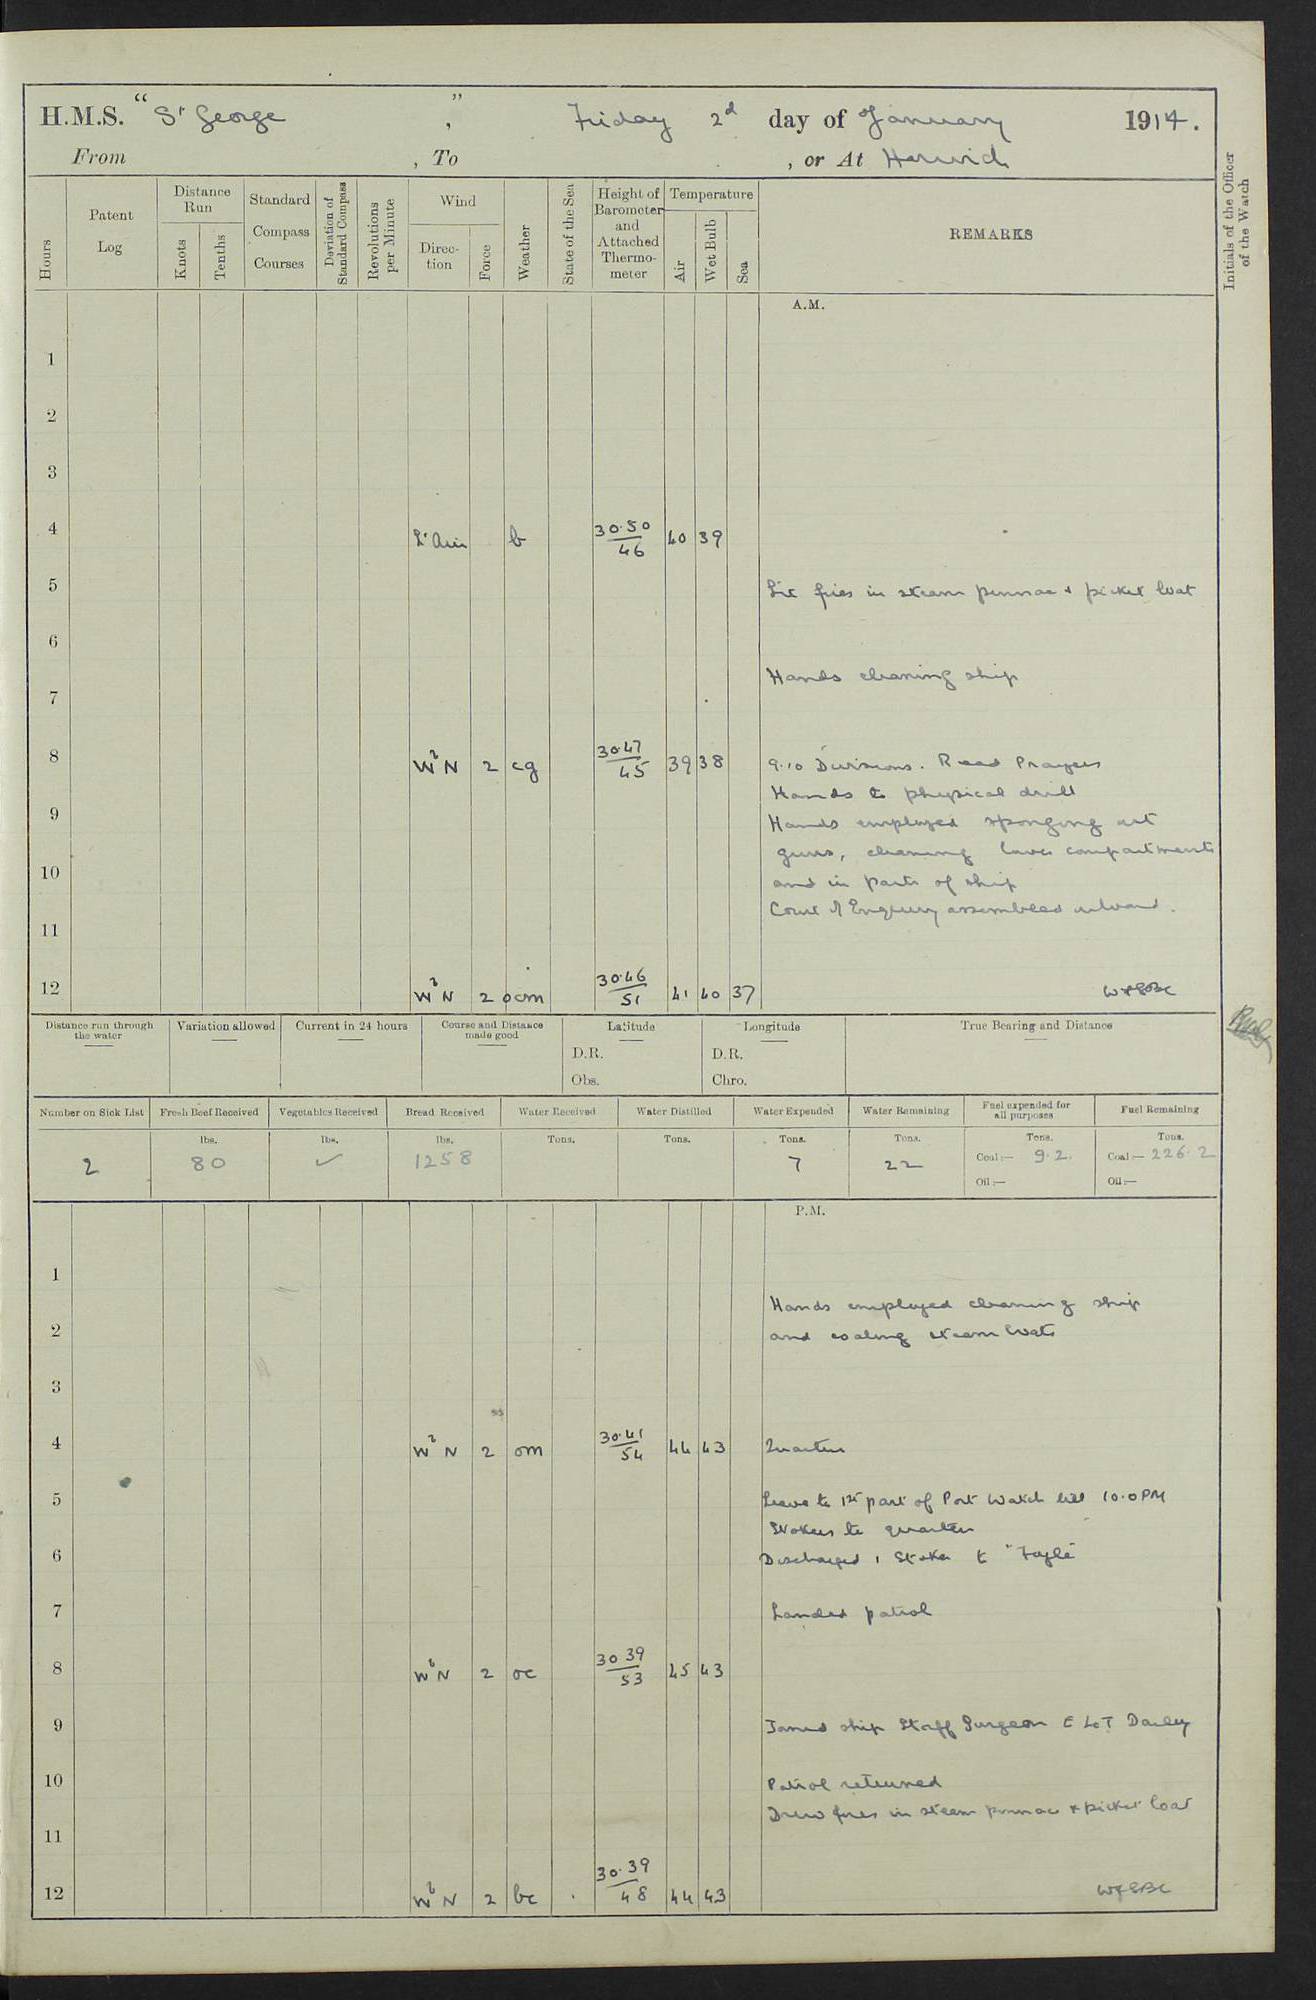 H.M.S. "St George", Friday 2d day of January 1914.
From , To , or At Harwich
Hours
Patent Log
Distance Run
Knots
Tenths
Standard Compass Courses
Deviation of Standard Compass
Revolutions per Minute
Wind
Direc-tion
Force
Weather
State of the Sea
Height of Barometer and Attached Thermo-meter
Temperature
Air
Wet Bulb
Sea
REMARKS
Initials of the Officer of the Watch
A.M.
1
2
3
4 Lt Air b 30.50 46 40 39
5 Lit fires in steam pinnace & picket boat
6
Hands cleaning ship
7
8 WbN 2 cg 30.47 45 39 38 9.10 Divisions. Read Prayers
Hands to physical drill
9 Hands employed sponging out
guns, cleaning lower compartments
10 and in parts of ship
Court of Enquiry assembled onboard.
11
12 WbN 2 ocm 30.46 51 41 40 37
Distance run through the water
Variation allowed
Current in 24 hours
Course and Distance made good
Latitude
D.R.
Obs.
Longitude
D.R.
Chro.
True Bearing and Distance
Number on Sick List
Fresh Beef Received
Vegetables Received
Bread Received
Water Received
Water Distilled
Water Expended
Water Remaining
Fuel expended for all purposes
Fuel Remaining
lbs. lbs. lbs. Tons. Tons. Tons. Tons. Tons. Tons.
2 80 ✓ 1258 7 22 Coal:— 9.2. Coal:— 226.2
Oil:— Oil:—
P.M.
1
Hands employed cleaning ship
2 and coaling steam boats
3
4 WbN 2 om 30.41 54 44 43 Quarters
5 Leave to 1st part of Port Watch till 10.0 PM
Stokers to quarters
6 Discharged 1 Stoker to "Foyle"
7 Landed patrol
8 WbN 2 oc 30 39 53 45 43
9 Joined ship Staff Surgeon E L T Darley
10 Patrol returned
Drew fires in steam pinnace & picket boat
11
12 WbN 2 bc 30.39 48 44 43